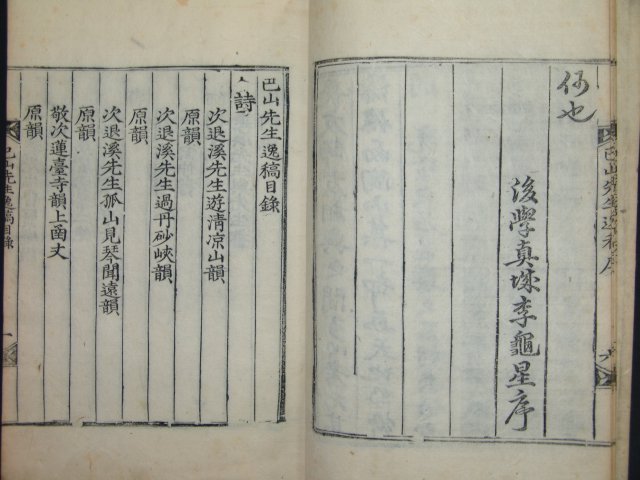 巴山先生逸稿序
六
何也
後學真城李龜星序
巴山先生逸稿目錄
詩
次退溪先生遊清凉山韻
原韻
次退溪先生過丹砂峽韻
原韻
次退溪先生孤山見琴聞遠韻
原韻
敬次蓮臺寺韻上函丈
原韻
巴山先生逸稿目錄
一